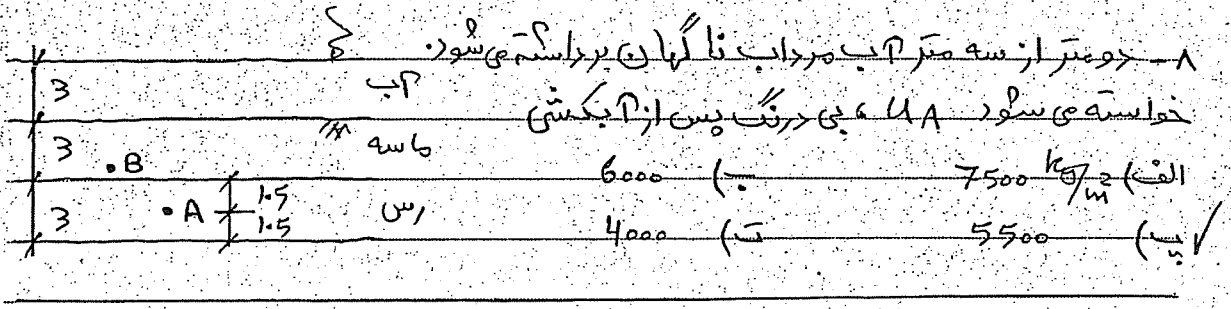 ۸- دو متر از سه متر آب مرداب ناگهان برداشته می‌شود.
خواسته می‌شود u_A ، بی درنگ پس از آبکشی
الف) 7500 kg/m² ب) 6000
پ) 5500 ت) 4000
3 آب
3 ماسه
.B
3 .A 1.5 رس
1.5